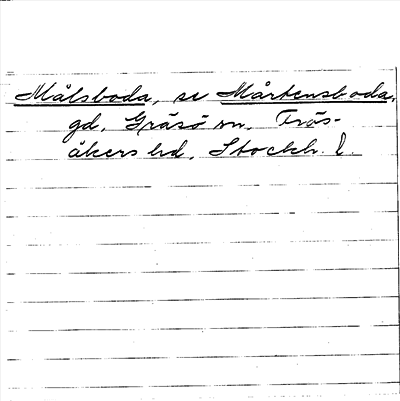 Målsboda, se Mårtensboda,
gd, Gräsö sn, Frös-
åkers hd, Stockh. l.